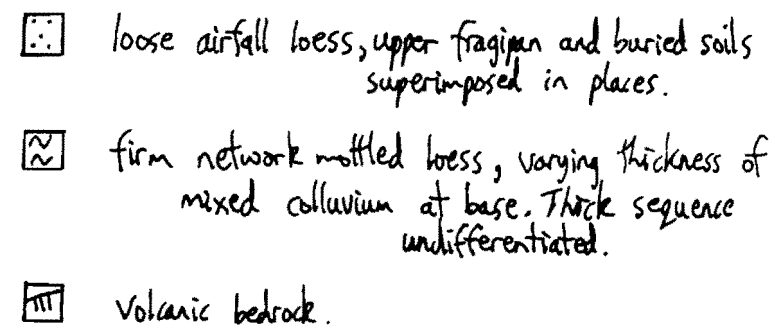 loose airfall loess, upper fragipan and buried soils
superimposed in places.
firm network mottled loess, varying thickness of
mixed colluvium at base. Thick sequence
undifferentiated.
Volcanic bedrock.